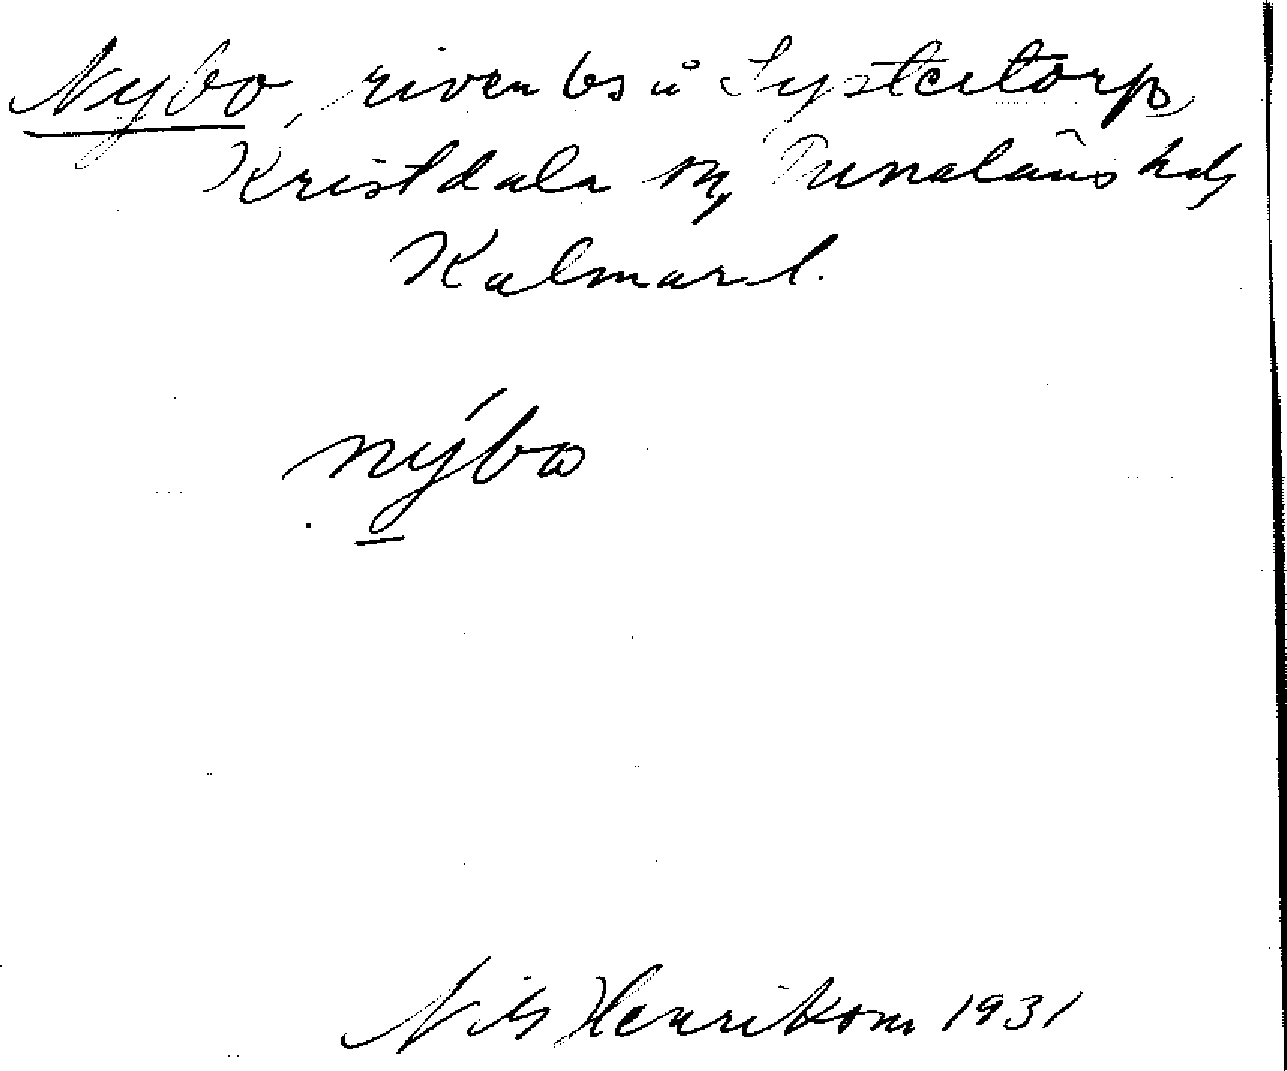 Nybo, riven bs å Systertorp
Kristdala sn, Tunaläns hd,
Kalmar l.
nýbo
Nils Henrikson 1931